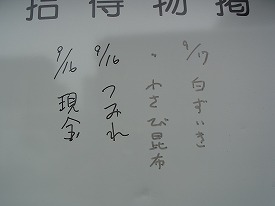 拾得物掲
9/17 白ずいき
〃 わさび昆布
9/16 つみれ
9/16 現金